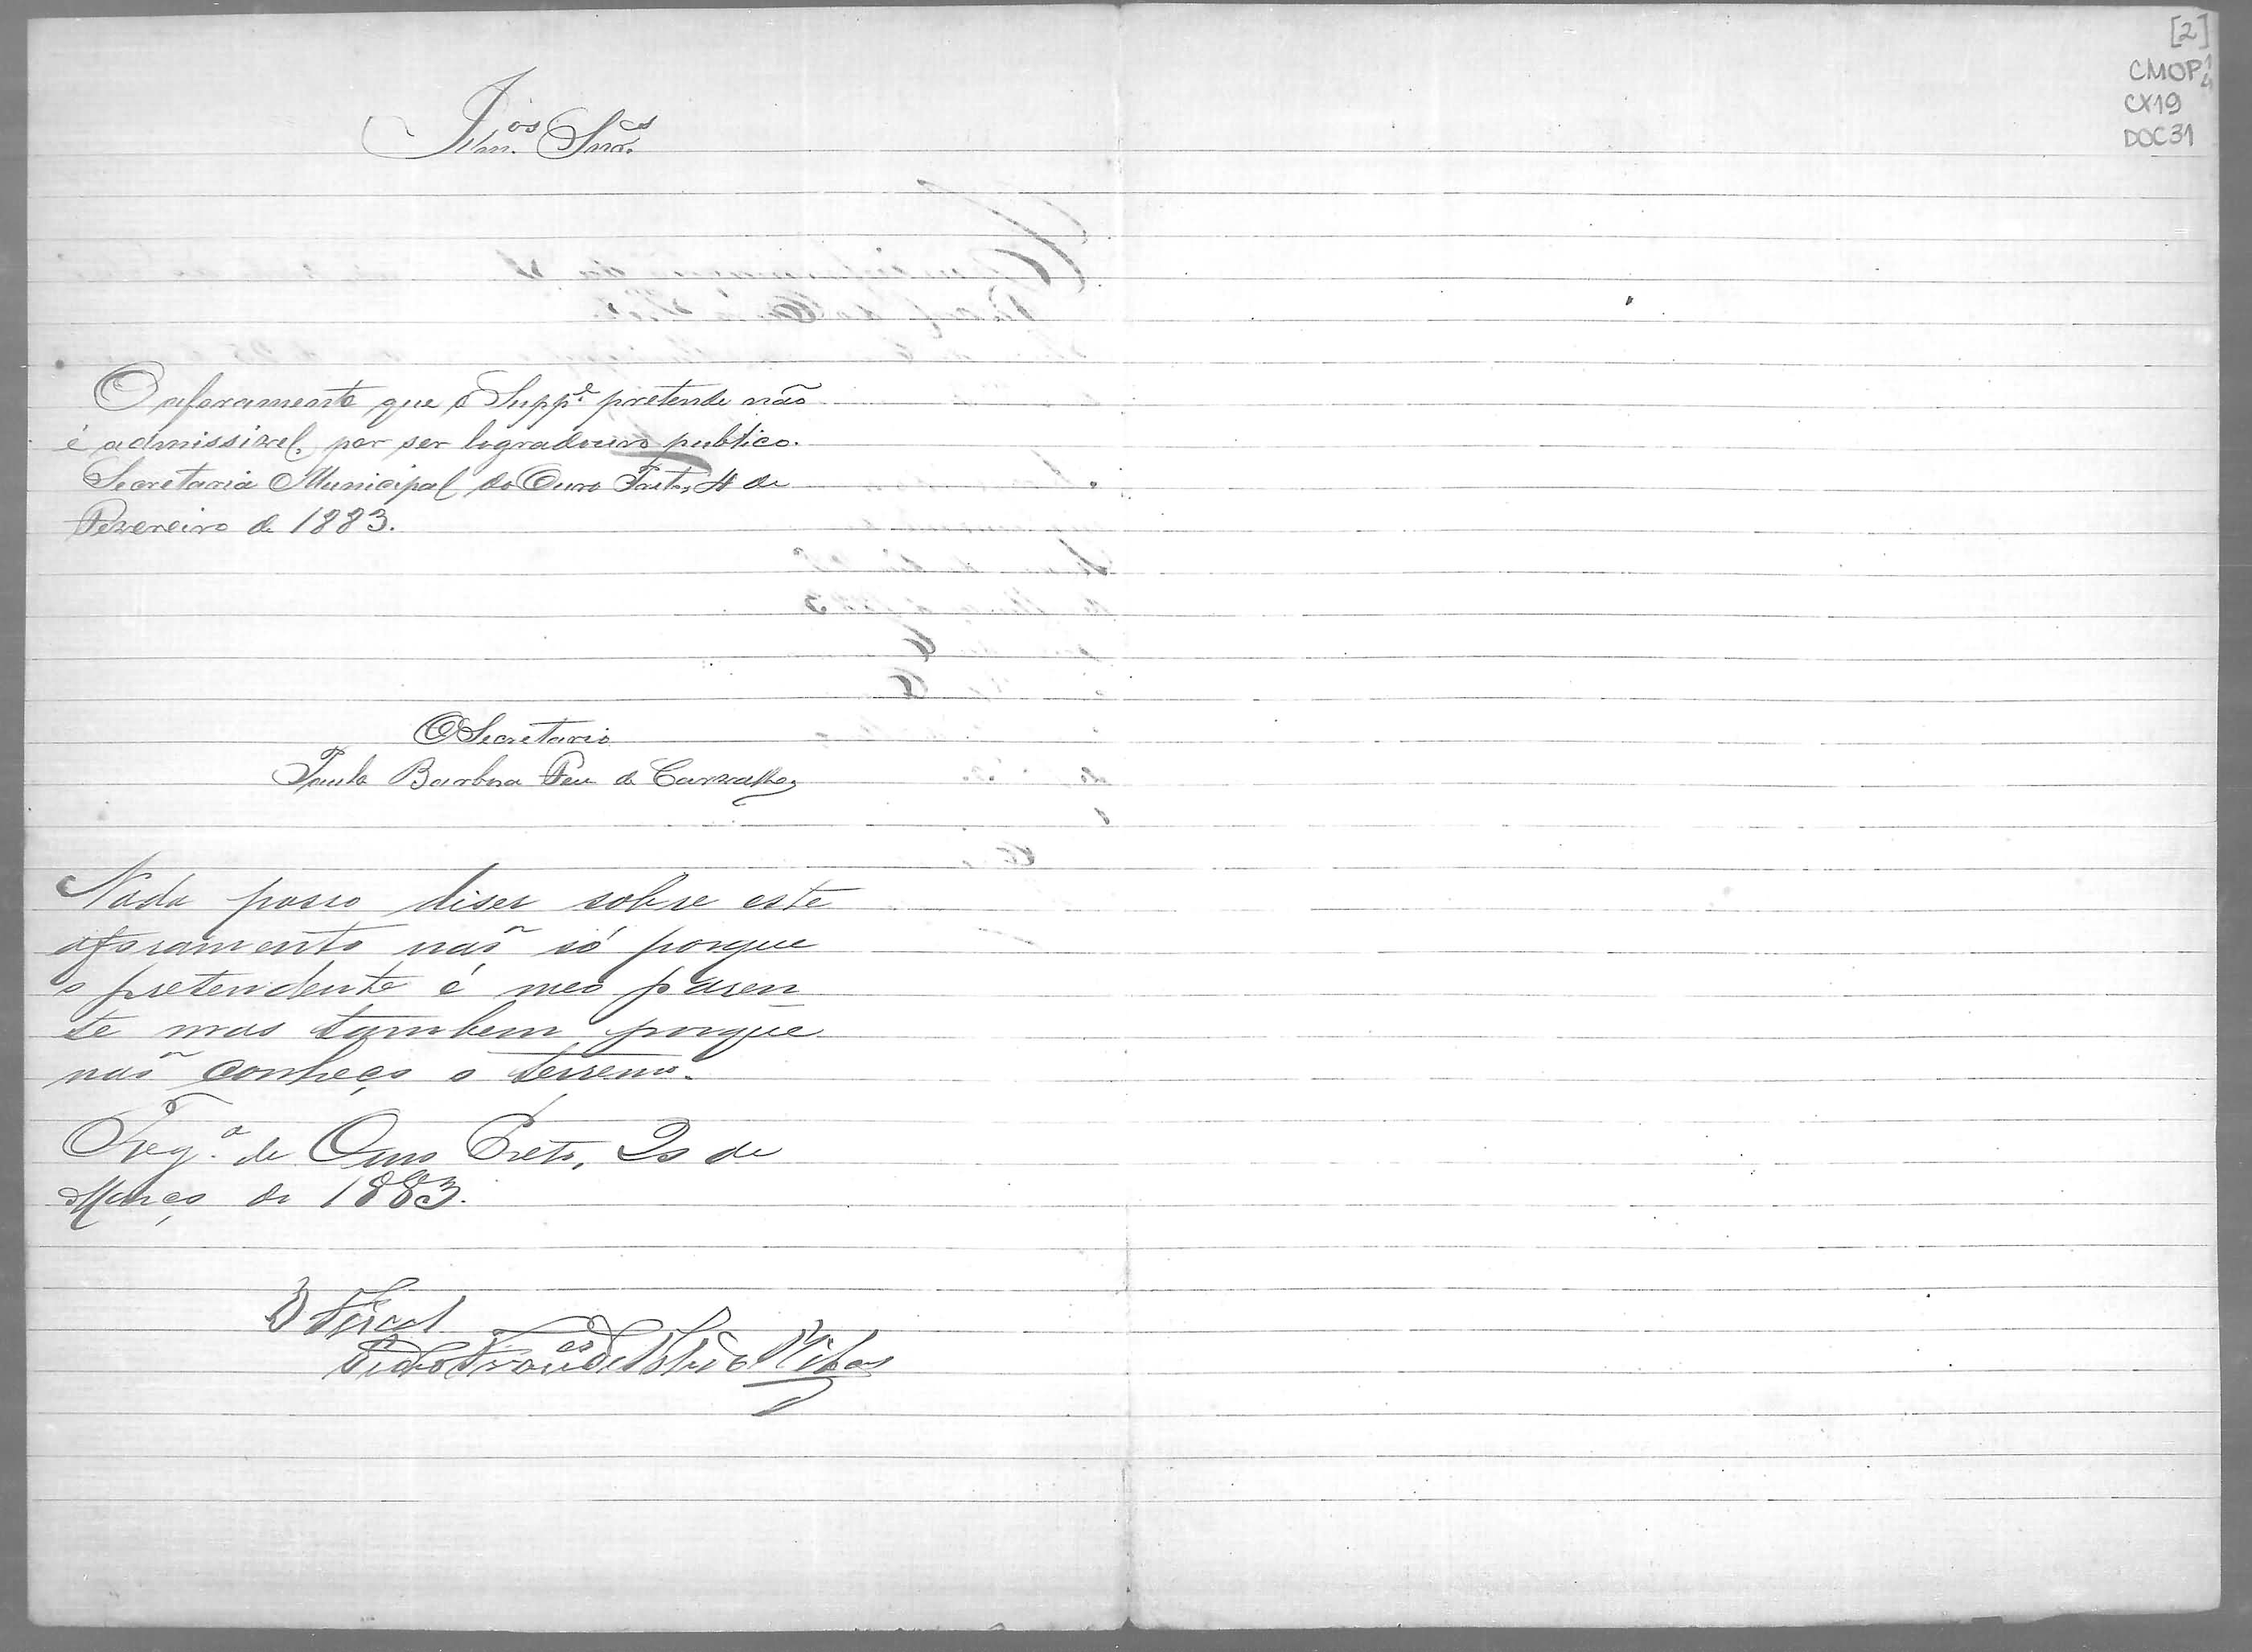 [2]
CMOP
CX19
DOC31
Illm.os Snr.es
O aforamento que o Supp.e pretende não
é admissivel, por ser logradouro publico.
Secretaria Municipal do Ouro Preto, 4 de
Fevereiro de 1883.
O Secretario
Paulo Barbosa de Carvalho
Nada posso diser sobre este
aforamento não só porque
o pretendente é meo paren
te mas tambem porque
não conheço o terreno.
Freg.a de Ouro Preto, 20 de
Março de 1883.
O Fiscal
Pedro